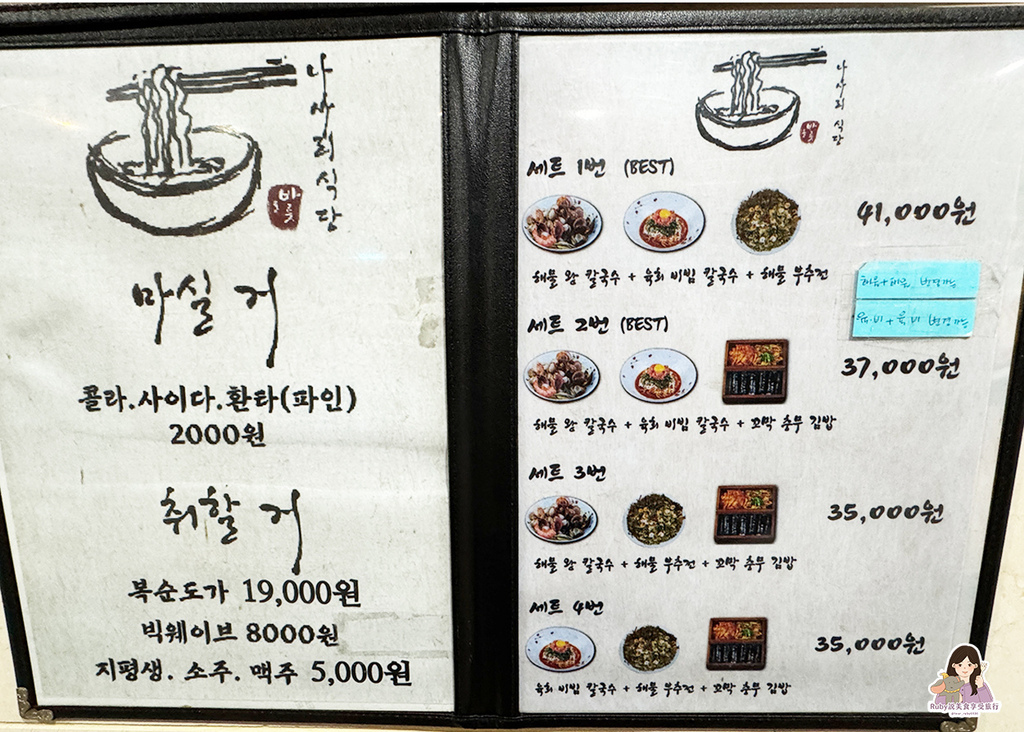 나사리식당
바릇
마실 거
콜라.사이다.환타(파인)
2000원
취할 거
복순도가 19,000원
빅웨이브 8000원
지평생. 소주. 맥주 5,000원
나사리식당
세트 1번 (BEST)
41,000원
해물 왕 칼국수 + 육회 비빔 칼국수 + 해물 부추전
세트 2번 (BEST)
37,000원
해물 왕 칼국수 + 육회 비빔 칼국수 + 꼬막 충무 김밥
세트 3번
35,000원
해물 왕 칼국수 + 해물 부추전 + 꼬막 충무 김밥
세트 4번
35,000원
육회 비빔 칼국수 + 해물 부추전 + 꼬막 충무 김밥
Ruby說美食享受旅行